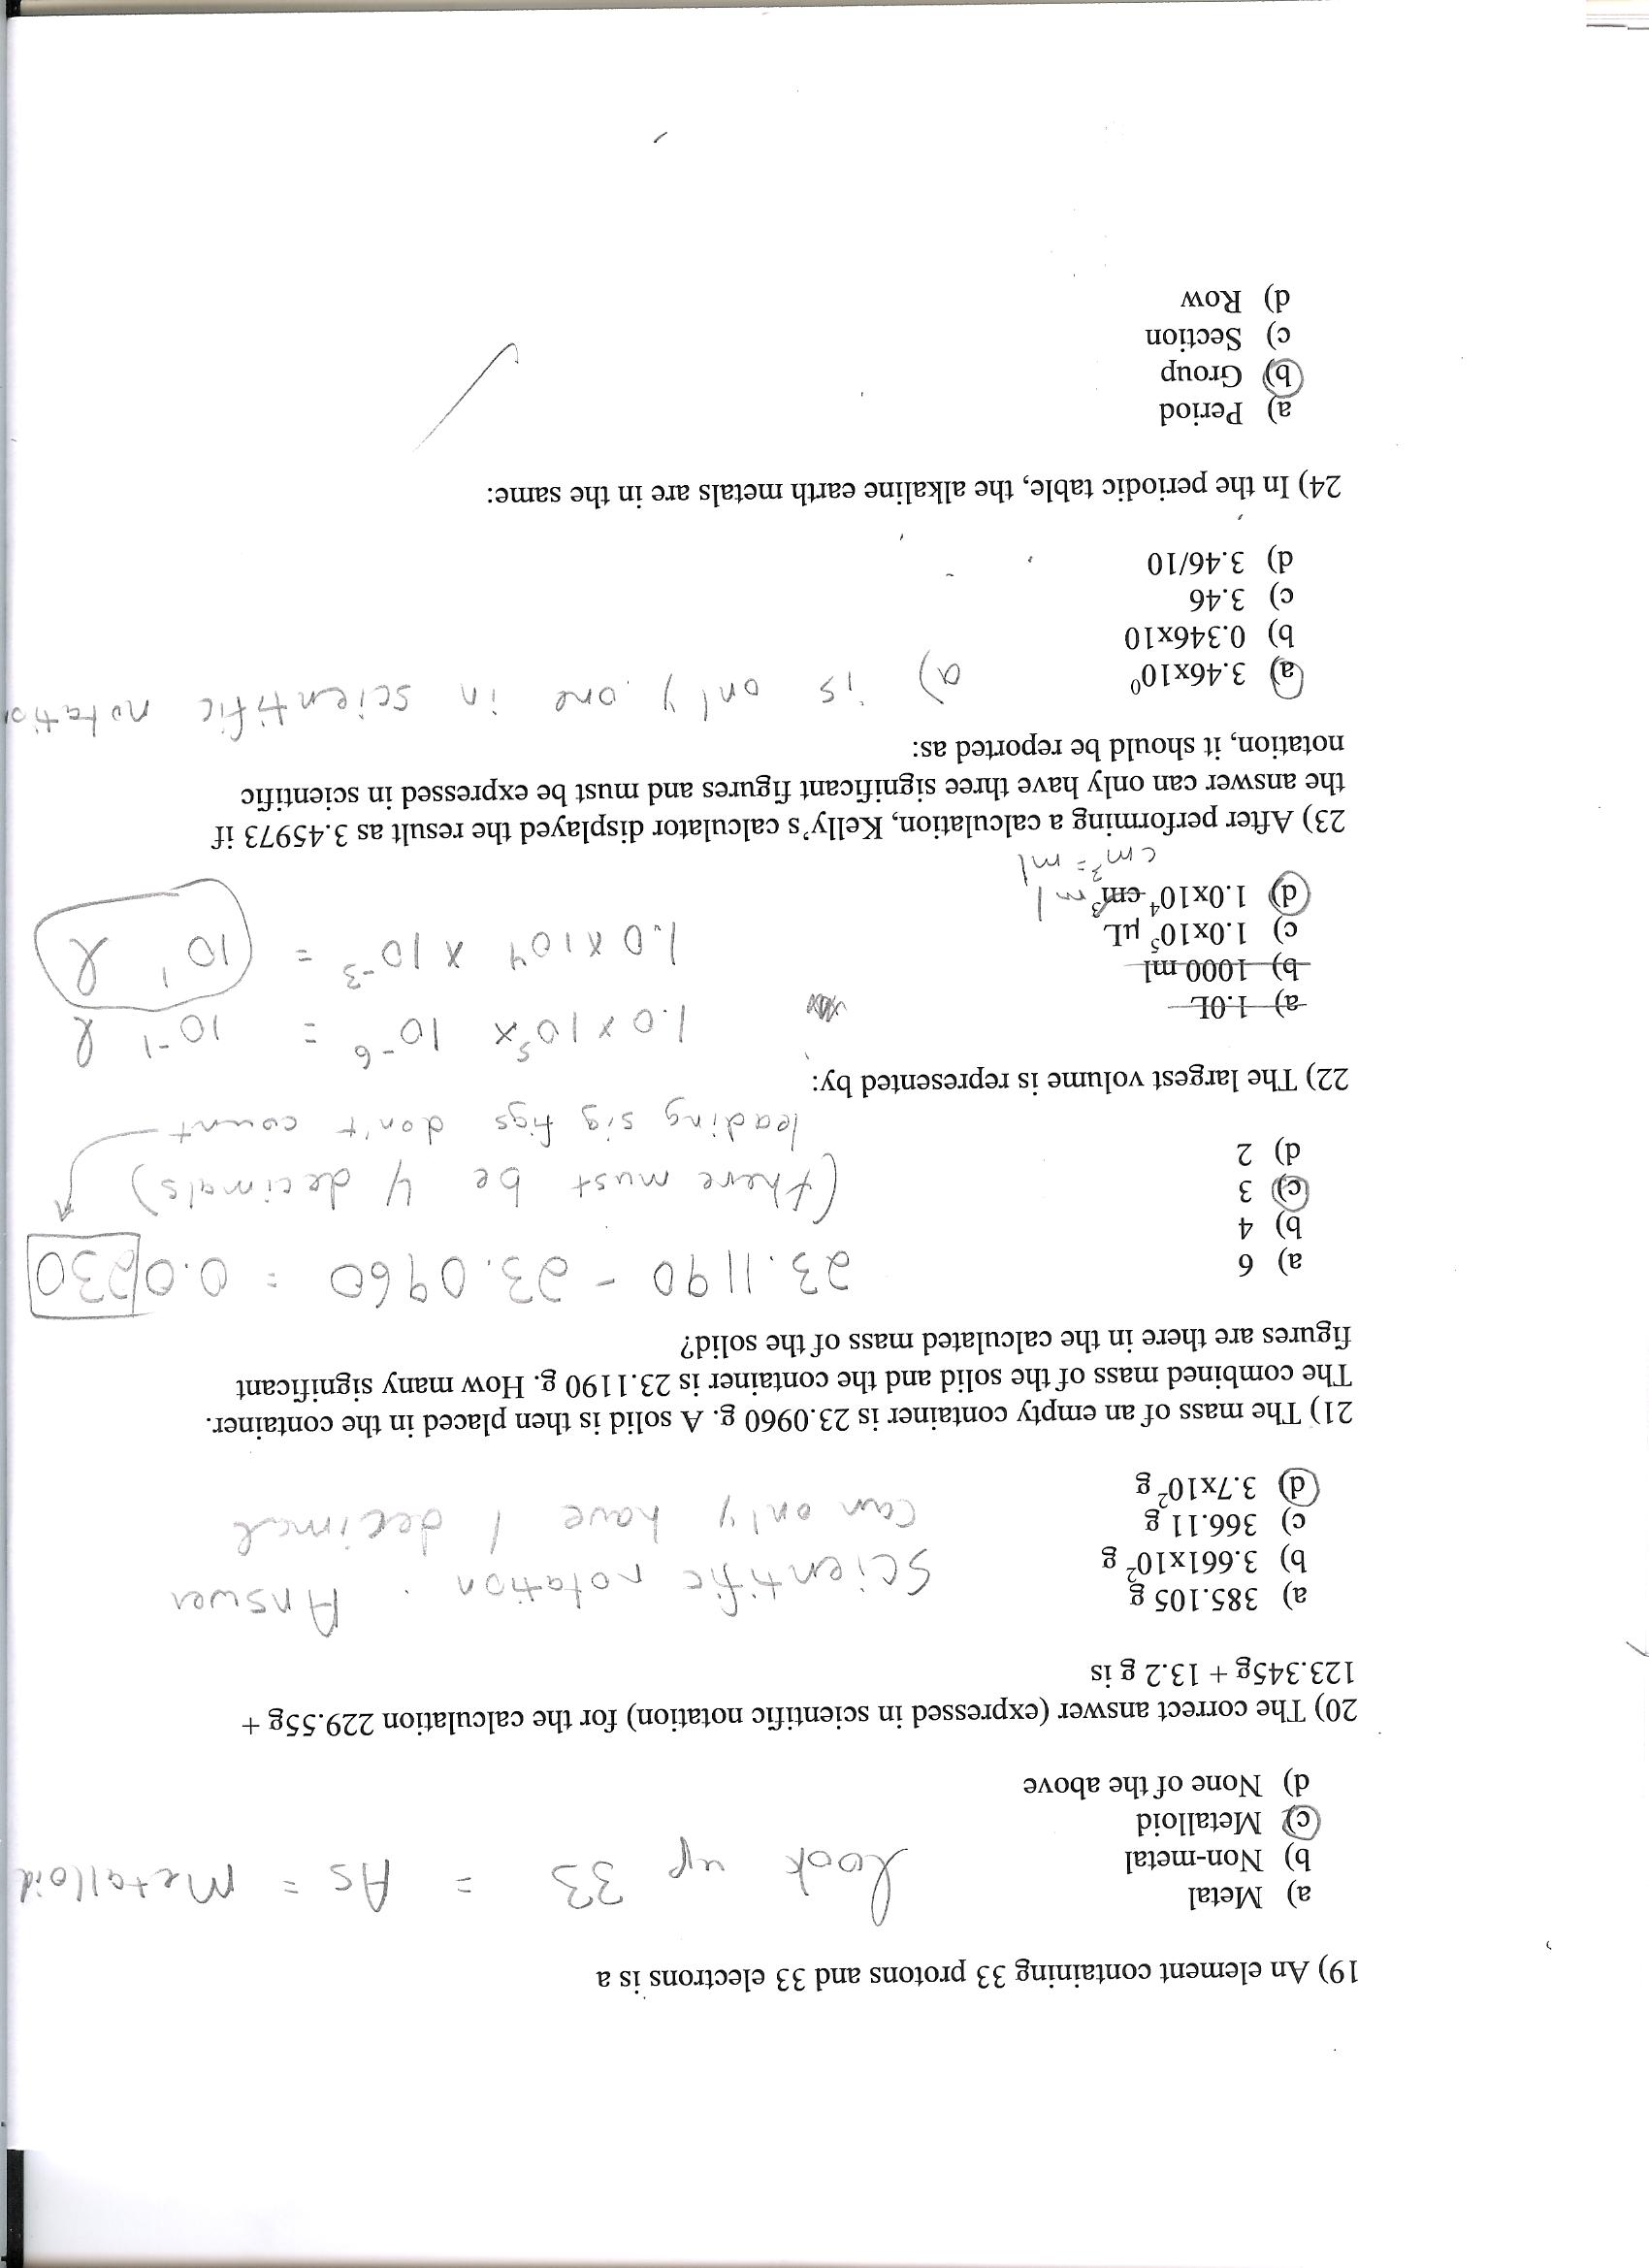 19) An element containing 33 protons and 33 electrons is a
a) Metal
b) Non-metal
c) Metalloid
d) None of the above
look up 33 = As = Metalloid
20) The correct answer (expressed in scientific notation) for the calculation 229.55g +
123.345g + 13.2 g is
a) 385.105 g
b) 3.661x10² g
c) 366.11 g
d) 3.7x10² g
Scientific notation. Answer
can only have 1 decimal
21) The mass of an empty container is 23.0960 g. A solid is then placed in the container.
The combined mass of the solid and the container is 23.1190 g. How many significant
figures are there in the calculated mass of the solid?
a) 6
b) 4
c) 3
d) 2
23.1190 - 23.0960 = 0.0230
(there must be 4 decimals)
leading sig figs don't count
22) The largest volume is represented by:
a) 1.0L
b) 1000 ml
c) 1.0x10⁵ µL
d) 1.0x10⁴ cm³ ml
cm³ = ml
1.0 x 10⁵ x 10⁻⁶ = 10⁻¹ l
1.0 x 10⁴ x 10⁻³ = 10¹ l
23) After performing a calculation, Kelly's calculator displayed the result as 3.45973 if
the answer can only have three significant figures and must be expressed in scientific
notation, it should be reported as:
a) 3.46x10⁰
b) 0.346x10
c) 3.46
d) 3.46/10
a) is only one in scientific notatio
24) In the periodic table, the alkaline earth metals are in the same:
a) Period
b) Group
c) Section
d) Row